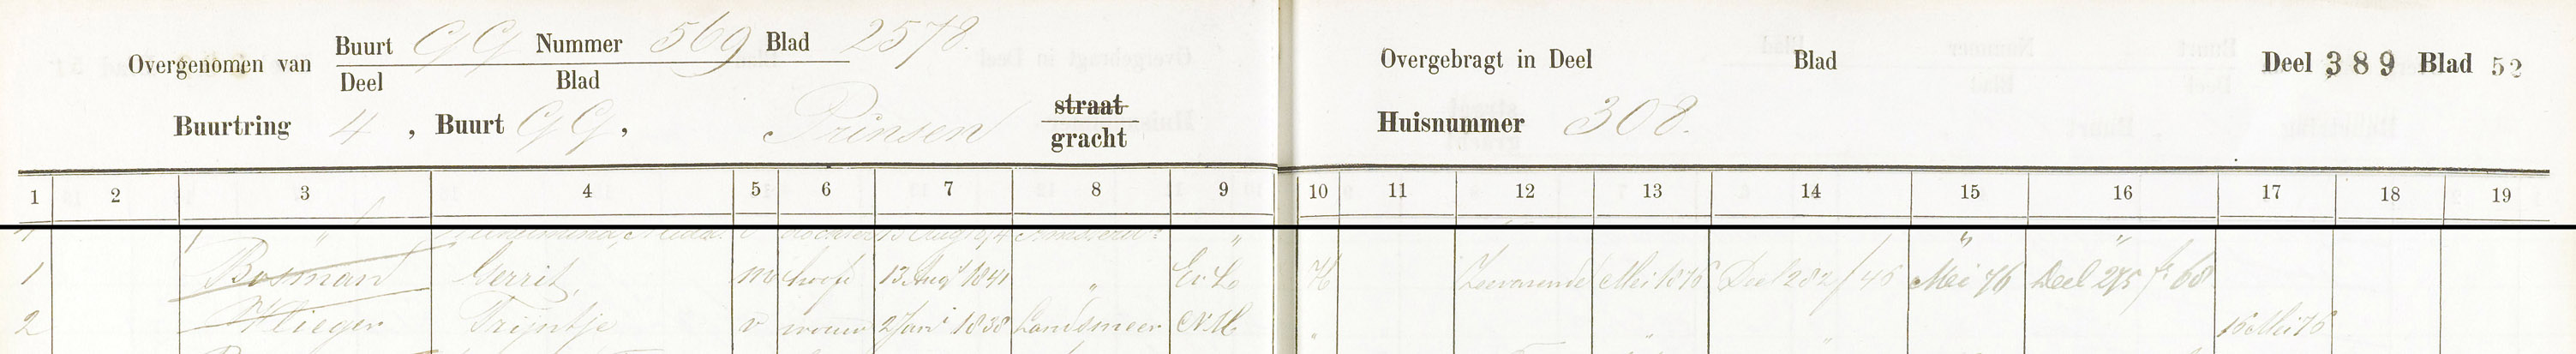 Overgenomen van Buurt GG Nummer 569 Blad 2578.
Deel Blad
Buurtring 4, Buurt GG, Prinsen straat gracht
Overgebragt in Deel Blad Deel 389 Blad 52
Huisnummer 308.
1 2 3 4 5 6 7 8 9 10 11 12 13 14 15 16 17 18 19
1 Bosman Gerrit m hoofd 13 Aug 1841 " Ev. L. H Zeevarende Mei 1876 Deel 282/46 Mei 76 Deel 275 fo 68
2 Vlieger Trijntje v vrouw 2 Jan 1838 Landsmeer N.H. " 16 Mei 76